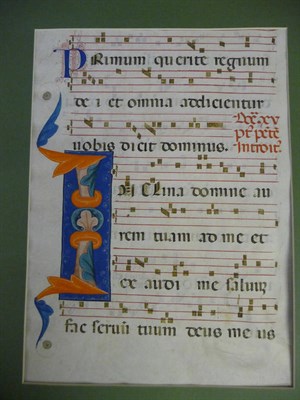 PRimum querite regnum
de i et omnia adelicientur
uobis dicit dominus.
INCLina domine au
rem tuam ad me et
ex audi me saluum
fac seruū tuum deus me us